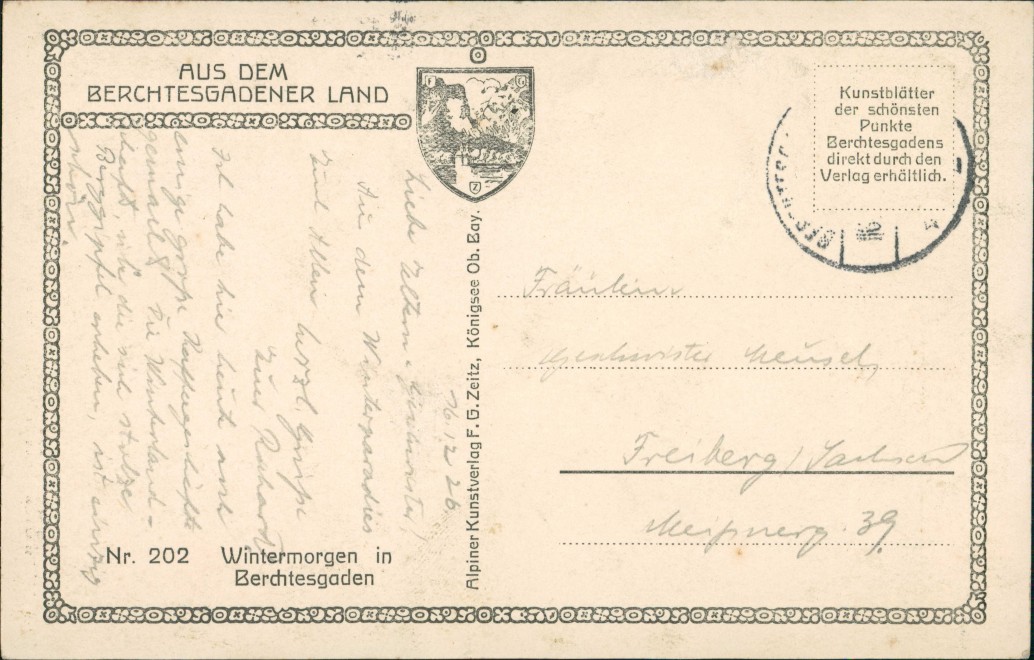 AUS DEM
BERCHTESGADENER LAND
F G
Z
Kunstblätter
der schönsten
Punkte
Berchtesgadens
direkt durch den
Verlag erhältlich.
16.12.26.
Liebe Eltern, Geschwister,
In dem Winterparadies
sind Allein herzl. Grüße
Euer
Ich habe hie heute noch
einige große
gemacht. Die Winterland-
schaft, wie die sich stolze
Berggipfel erheben, ist einzig
schön.
Alpiner Kunstverlag F. G. Zeitz, Königsee Ob. Bay.
Fräulein
Geschwister
Freiberg / Sachsen
Meißnerg. 39.
Nr. 202 Wintermorgen in
Berchtesgaden